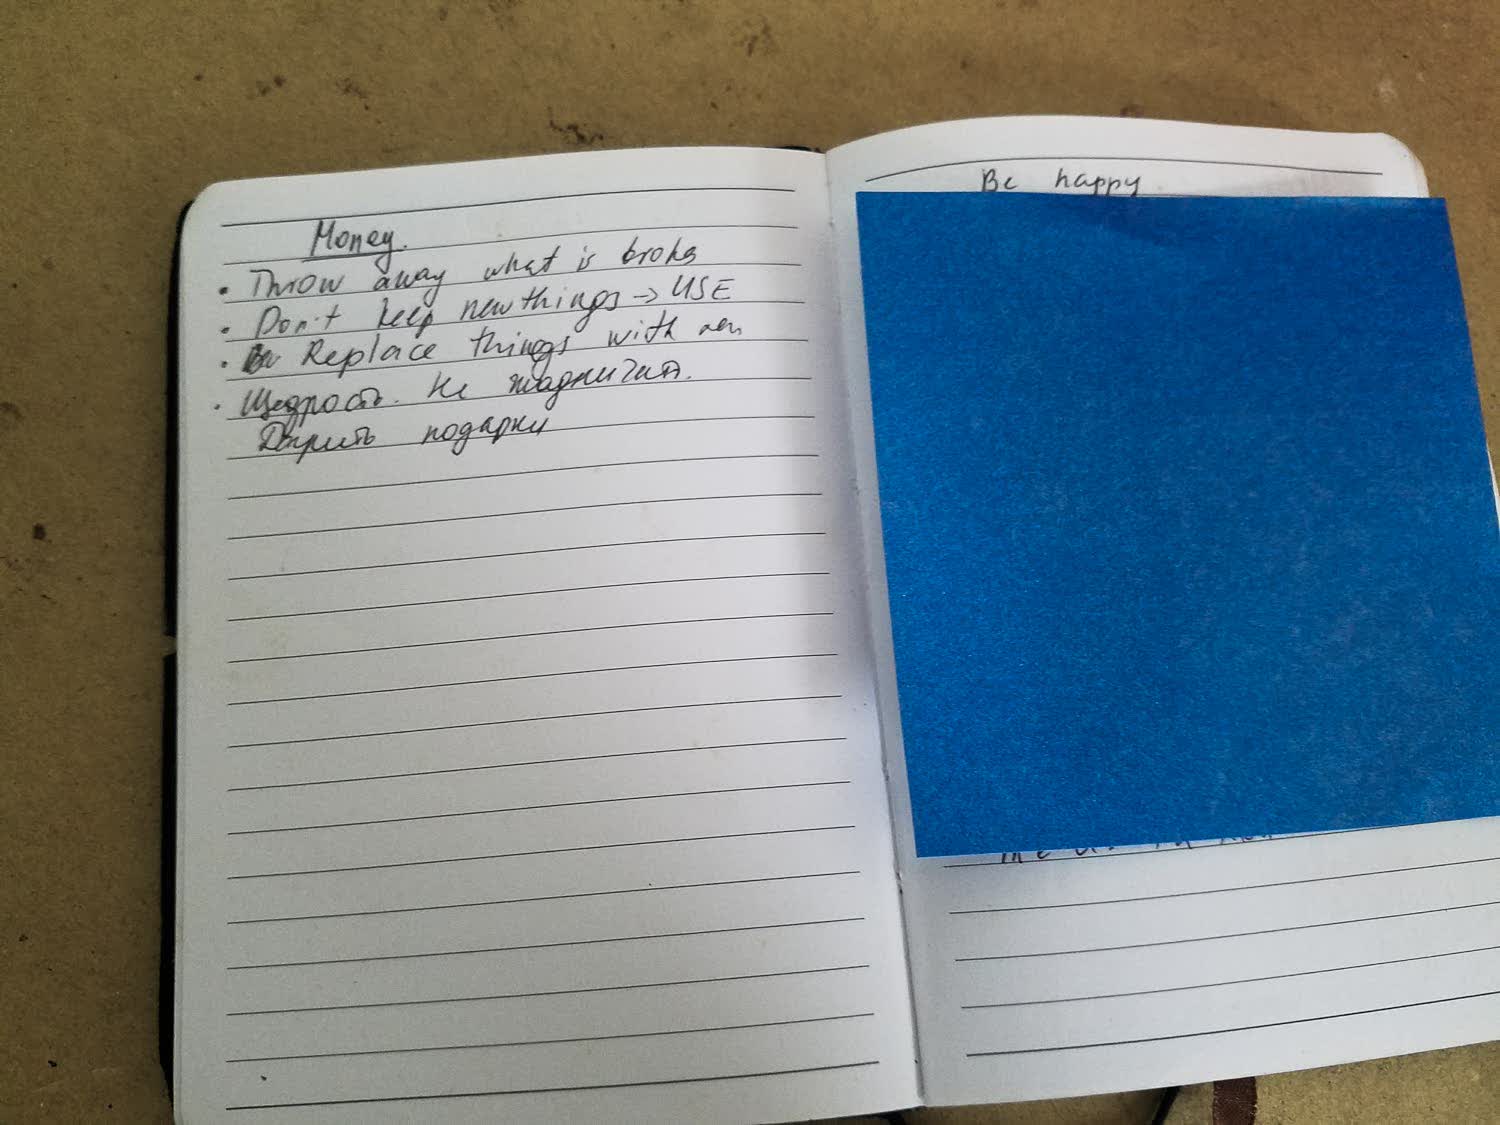 Money.
• Throw away what is broke
• Don't keep new things → USE
• Replace things with new
• Щедрость. Не жадничать.
Дарить подарки
Be happy